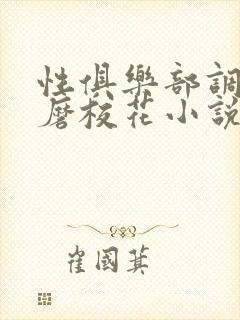 性俱樂部調
磨校花小說
崔國萁